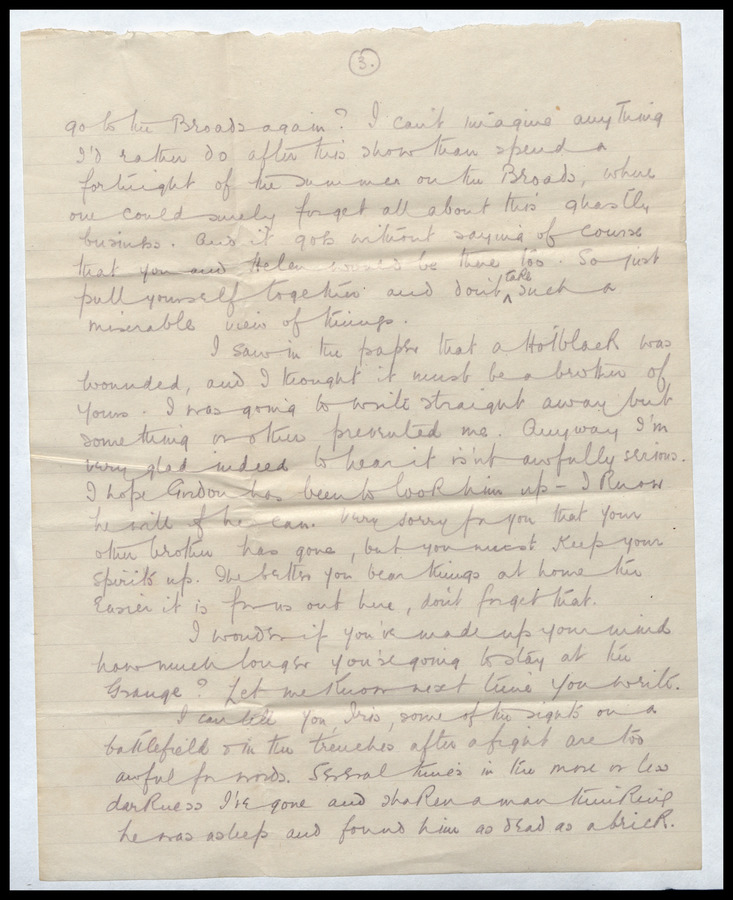 3.
go to the Broads again? I can't imagine anything
I'd rather do after this show than spend a
fortnight of the summer on the Broads, where
one could surely forget all about this ghastly
business. And it goes without saying of course
that you and Helen would be there too. So just
pull yourself together and don't take such a
miserable view of things.
I saw in the paper that a Hotblack was
wounded, and I thought it must be a brother of
yours. I was going to write straight away but
something or other prevented me. Anyway I'm
very glad indeed to hear it isn't awfully serious.
I hope Gordon has been to look him up – I know
he will if he can. Very sorry for you that your
other brother has gone, but you must keep your
spirits up. The better you bear things at home the
easier it is for us out here, don't forget that.
I wonder if you've made up your mind
how much longer you're going to stay at the
Grange? Let me know next time you write.
I can tell you, Iris, some of the sights on a
battlefield & in the trenches after a fight are too
awful for words. Several times in the more or less
darkness I've gone and shaken a man thinking
he was asleep and found him as dead as a brick.